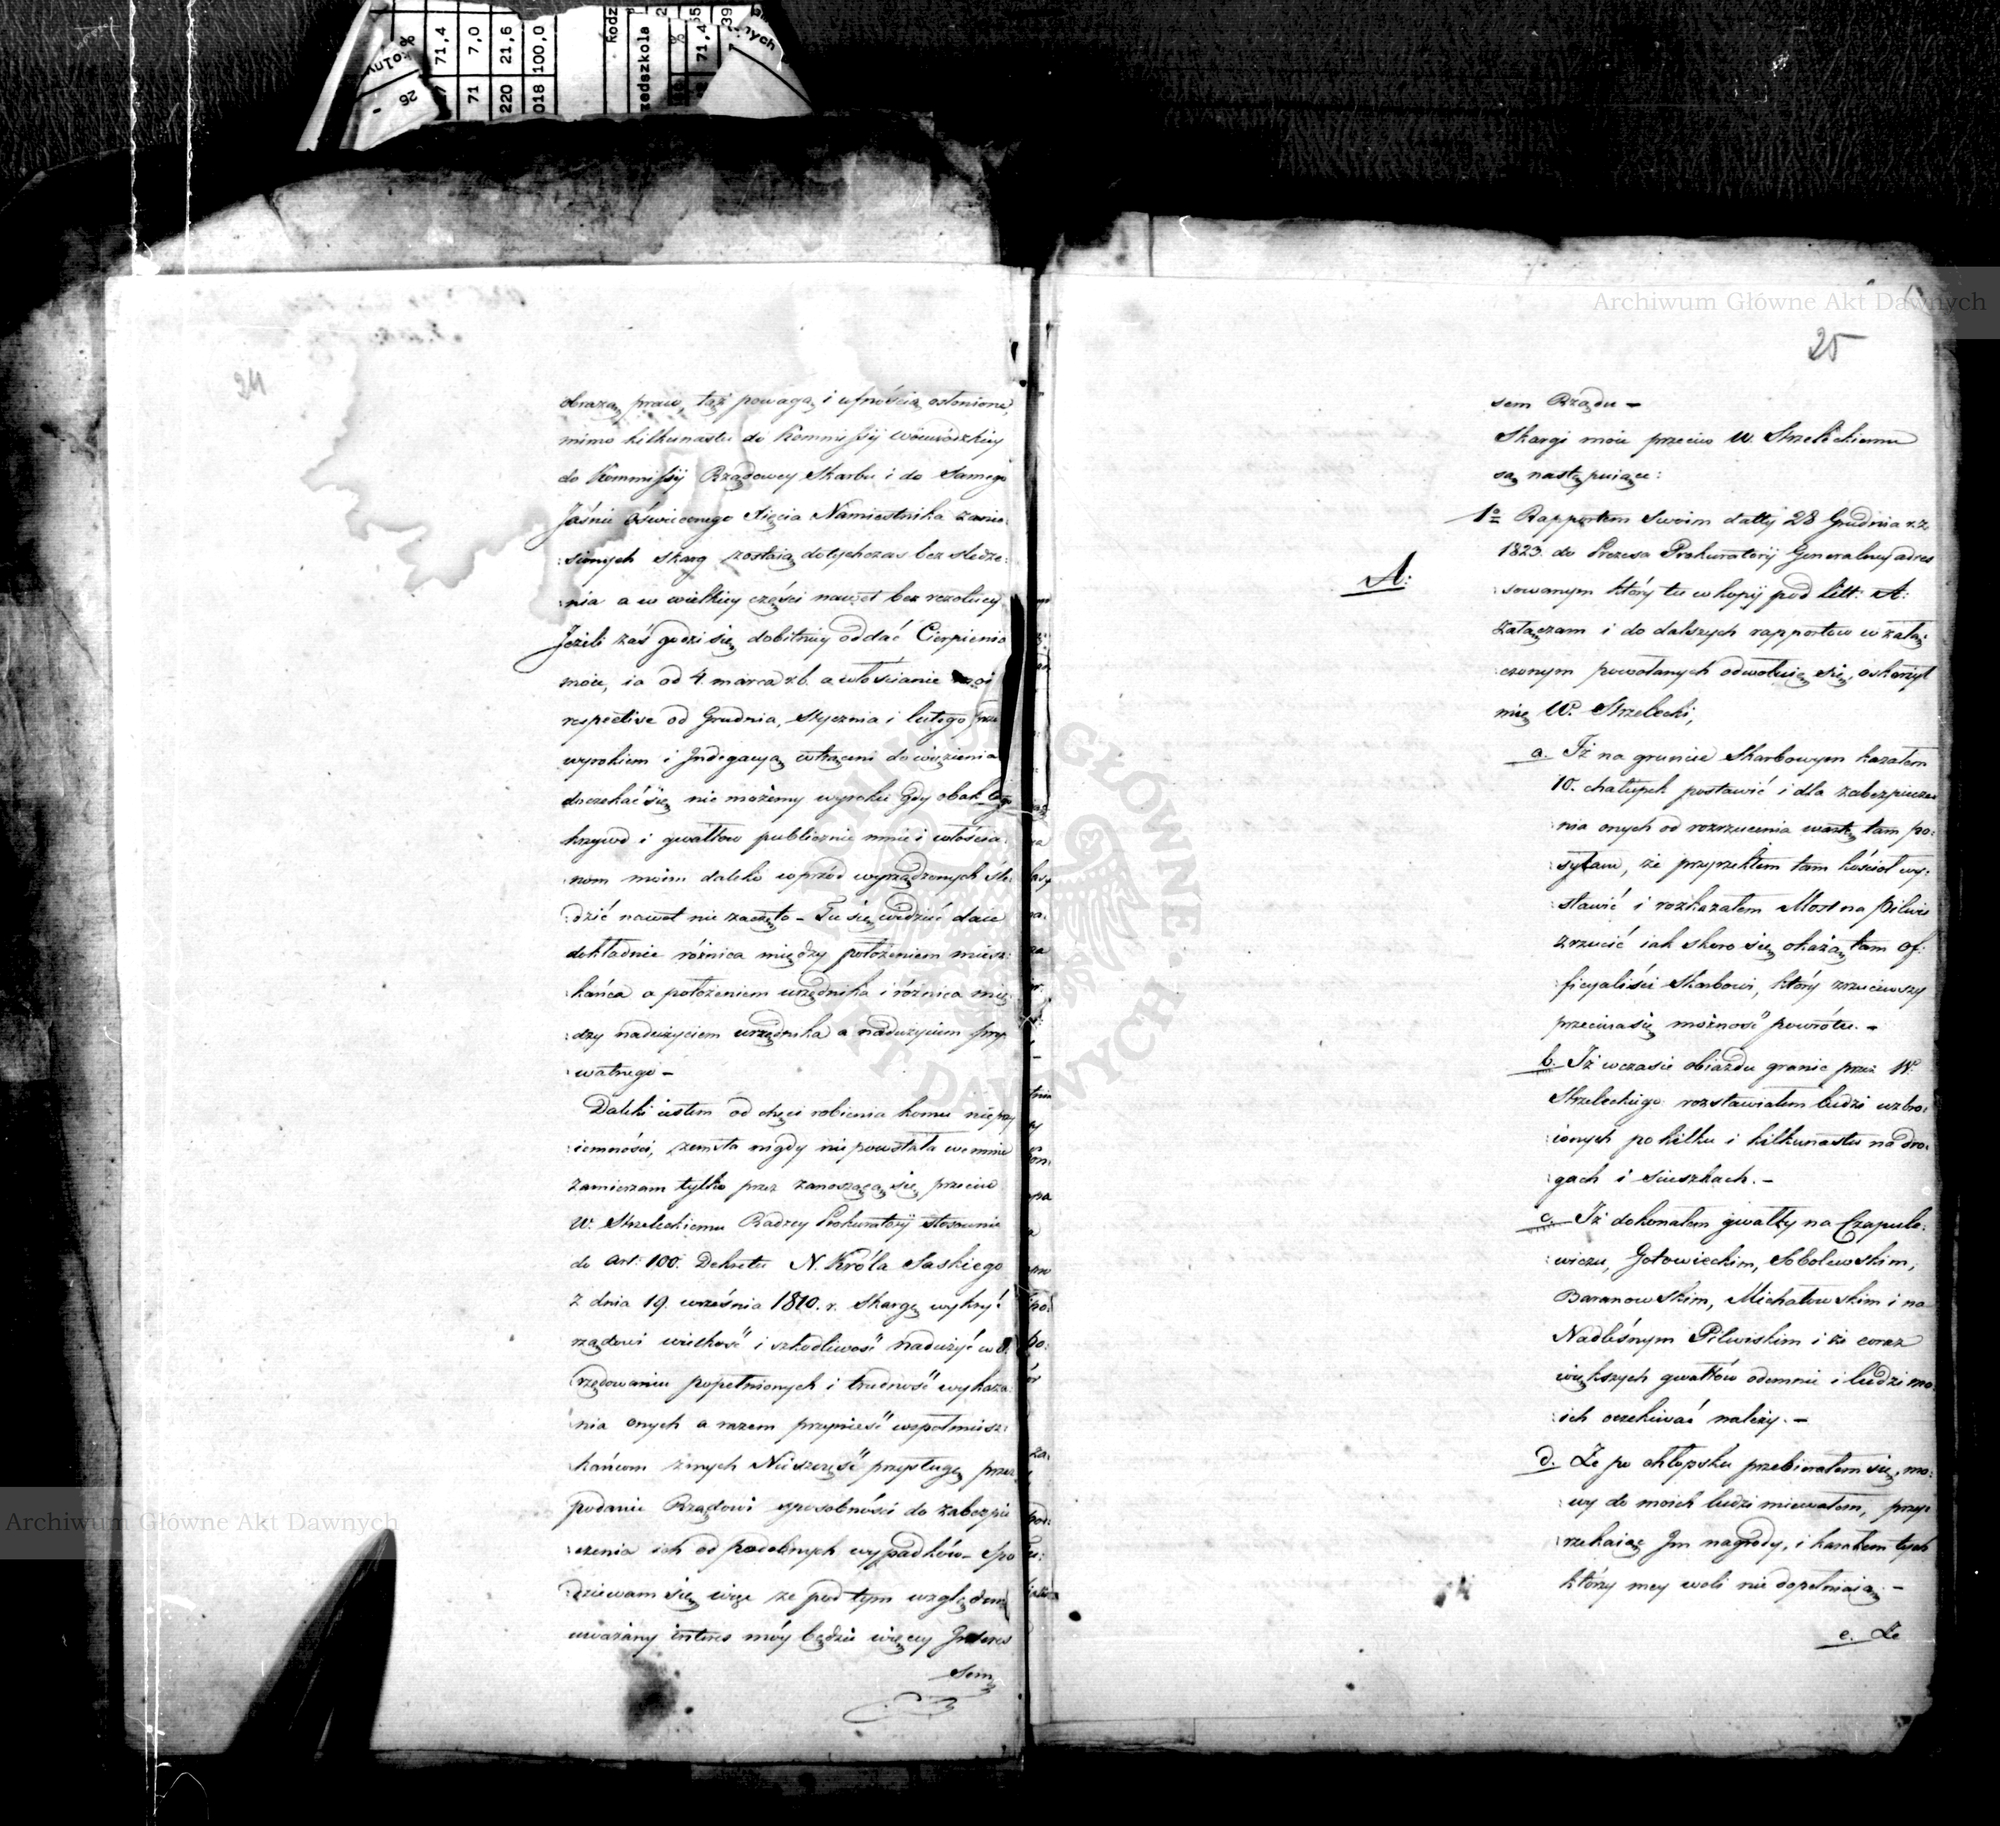 24
obrazą praw, tąż powagą i ufnością osłonione,
mimo kilkunastu do Kommissyi Woiewódzkiey
do Kommissyi Rządowey Skarbu i do Samego
Jaśnie Oświeconego Xięcia Namiestnika zanie:
:sionych skarg zostaią dotychczas bez śledze:
:nia a w wielkiey części nawet bez rezolucyi
Jeżeli zaś godzi się dobitniey oddać Cierpienia
moie, ia od 4. marca r.b. a włościanie moi
respective od Grudnia, Stycznia i lutego przed
wyrokiem i Indagacyą wtrąceni do więzienia
doczekać się nie możemy wyroku gdy obok tego
krzywd i gwałtów publicznie mnie i włościa:
:nom moim daleko wprzód wyrządzonych śle:
:dzić nawet nie zaczęto – Tu się widzieć daie
dokładnie różnica między położeniem miesz:
:kańca a położeniem urzędnika i różnica mię:
:dzy nadużyciem urzędnika a nadużyciem pry:
:watnego –
Daleki iestem od chęci robienia komu nieprzy
:iemności, zemsta nigdy nie powstała we mnie
zamierzam tylko przez zanoszącą się przeciw
W. Strzeleckiemu Radzcy Prokuratoryi stosownie
do Art: 100. Dekretu N. Króla Saskiego
z dnia 19. września 1810. r. Skargę wykryć
rządowi wielkość i szkodliwość nadużyć w U
rzędowaniu popełnionych i trudność wykaza:
:nia onych a razem przynieść współmiesz:
:kańcom innych Nieszczęść przysługę przez
podanie Rządowi sposobności do zabezpie
:czenia ich od podobnych wypadków – Spo
dziewam się więc że pod tym względem
uważany interes móy będzie więcey Interes
sem
25
sem Rządu –
Skargi moie przeciw W. Strzeleckiemu
są następuiące:
1º Rapportem Swoim datty 28 Grudnia r.z.
1823. do Prezesa Prokuratoryi Generalney adres
:sowanym który tu w kopii pod litt: A:
A:
załączam i do dalszych rapportów w załą:
:czonym powołanych odwołuię się, oskarżył
mię W. Strzelecki,
a. Iż na gruncie Skarbowym kazałem
10. chałupek postawić i dla zabezpiecze
:nia onych od rozrzucenia wartę tam po:
:syłam, że przyrzekłem tam kościół wy:
:stawić i rozkazałem Most na Pilwie
zrzucić iak skoro się okażą tam Of:
ficyaliści Skarbowi, który zrzuciwszy
przecina się możność powrótu. –
b. Iż w czasie obiazdu granic przez W.
Strzeleckiego rozstawiałem ludzi uzbro:
:ionych po kilku i kilkunastu na dro:
:gach i scieszkach. –
c. Iż dokonałem gwałty na Czapule:
:wiczu, Gotowieckim, Sobolewskim,
Baranowskim, Michałowskim i na
Nadleśnym Pilwiskim i że coraz
większych gwałtów odemnie i ludzi mo
:ich oczekiwać należy. –
d. Że po chłopsku przebierałem się, mo:
:wy do moich ludzi miewałem, przy:
:rzekaiąc Im nagrody, i karałem tych
którzy mey woli nie dopełniaią. –
e. Że